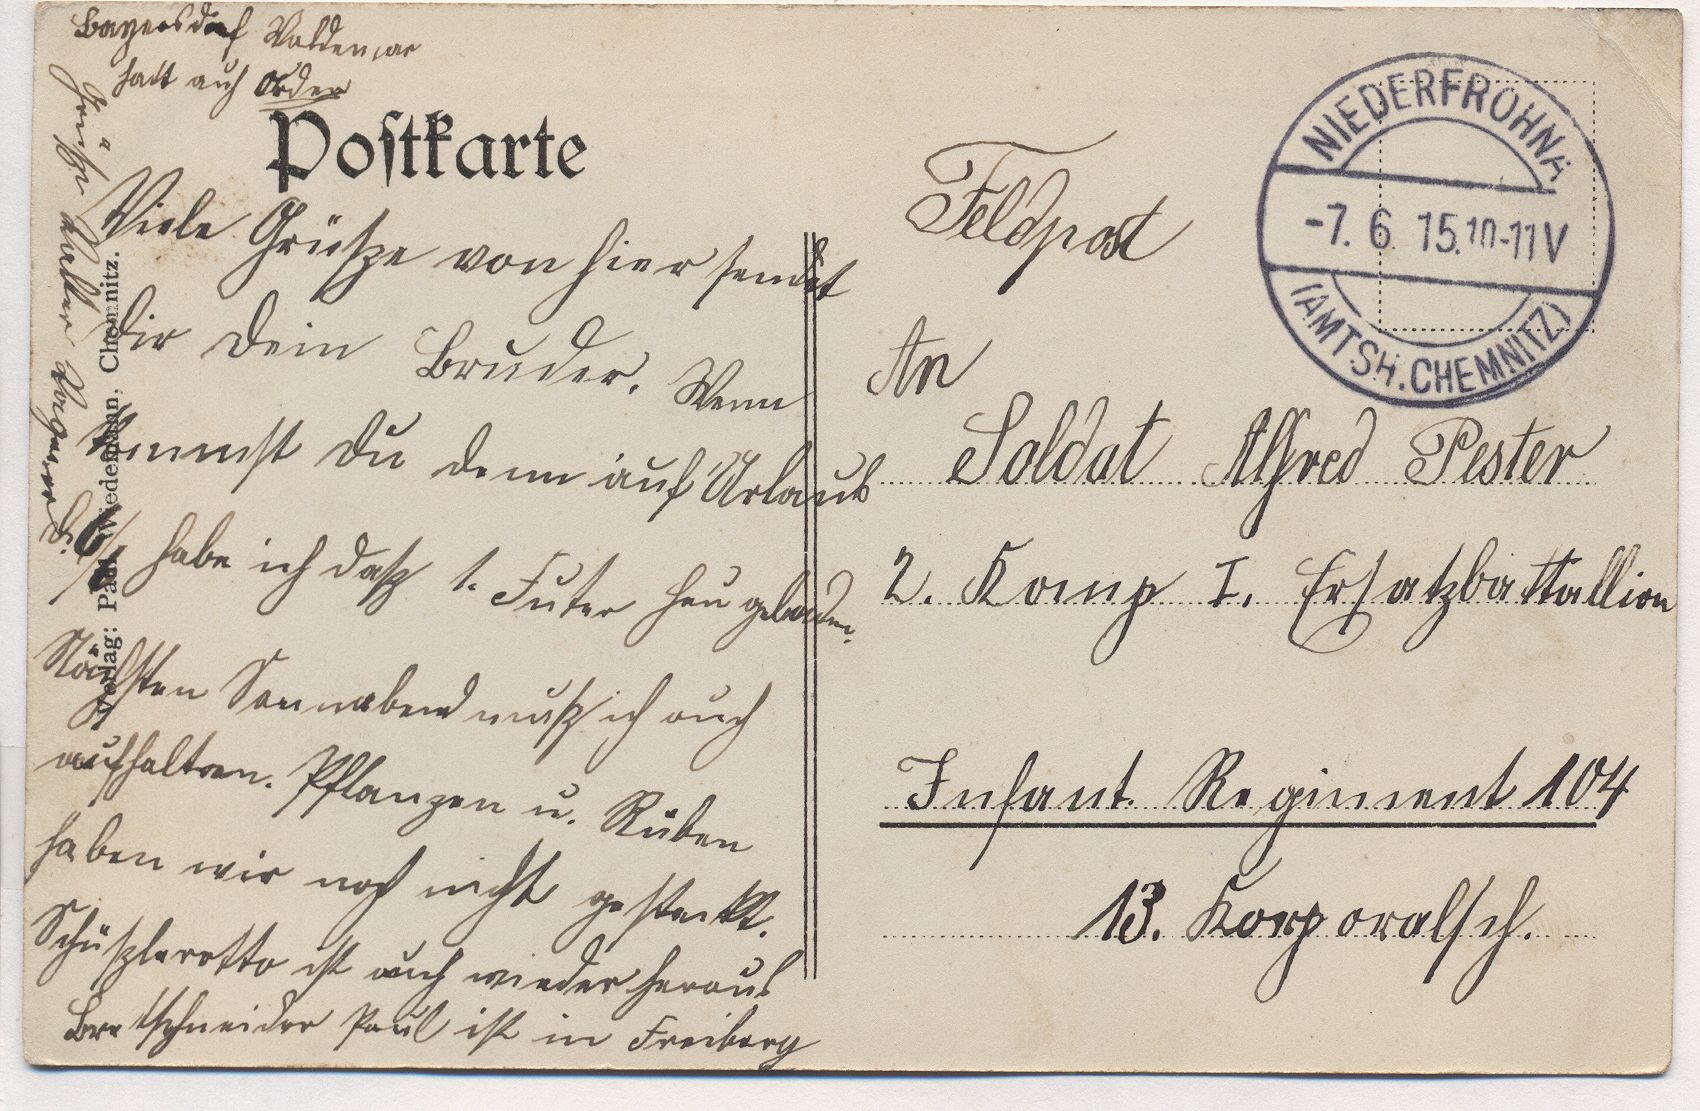 Bayersdorf Woldemar
hatt auch Order
Postkarte
Viele Grüsze von hier sendet
Dir Dein Bruder. Wenn
kommst Du denn auf Urlaub
habe ich dasz 1. Futer Heu geladen.
Nächsten Sonnabend musz ich auch
aufhalten. Pflanzen u. Rüben
haben wir noch nicht gesteckt.
Schüszlerotto ist auch wieder heraus
Bretschneider Paul ist in Freiberg
Grüsze
Verlag: Paul Wiedemann, Chemnitz.
NIEDERFROHNA
-7. 6. 15. 10-11 V
(AMTSH. CHEMNITZ)
Feldpost
An
Soldat Alfred Pester
2. Komp I. Ersatzbattallion
Infant. Regiment 104
13. Korporalsch.